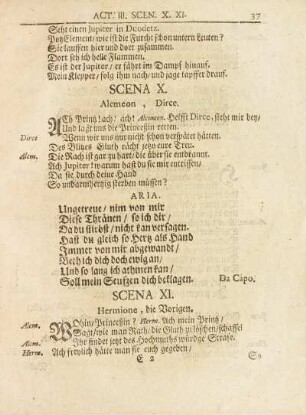 ACT. III. SCEN. X. XI. 37
Seht einen Jupiter in Duodetz.
Potz Element/ wie ist die Furcht schon untern Leuten?
Sie lauffen hier und dort zusammen.
Dort seh ich helle Flammen.
Es ist der Jupiter/ er fährt im Dampf hinauf.
Mein Klepper/ folg ihm nach/ und jage tapffer drauf.
SCENA X.
Alcmeon, Dirce.
ACh Printz! ach! ach! Alcmeon. Helfft Dirce, steht mir bey/
Und last uns die Princeßin retten.
Dirce Wenn wir uns nur nicht schon verspätet hätten.
Des Blitzes Gluth rächt jetzt eure Treu.
Alcm. Die Rach ist gar zu hart/ die über sie entbrannt.
Ach Jupiter! warum hast du sie mir entrissen/
Da sie durch deine Hand
So unbarmhertzig sterben müssen?
ARIA.
Ungetreue/ nim von mir
Diese Thränen/ so ich dir/
Da du stirbst/ nicht kan versagen.
Hast du gleich so Hertz als Hand
Immer von mir abgewandt/
Weih ich dich doch ewig an/
Und so lang ich athmen kan/
Soll mein Seufzen dich beklagen. Da Capo.
SCENA XI.
Hermione, die Vorigen.
Alcm. WOhin/ Princeßin? Herm. Ach mein Printz/
Sagt/ wie man Rath/ die Gluth zu löschen/ schaffe!
Alcm. Ihr findet jetzt des Hochmuths würdge Straffe.
Herm. Ach freylich hätte man sie euch gegeben/
E 2 So